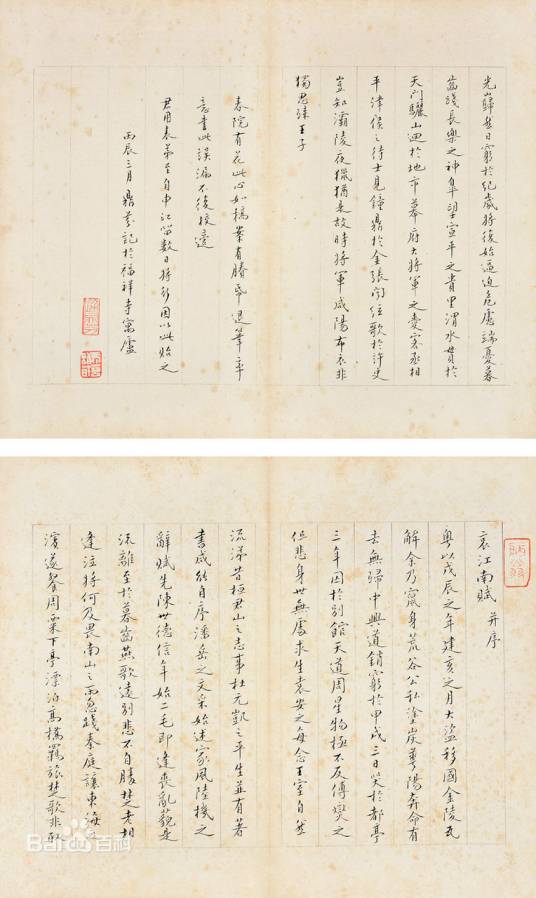 光巋然日窮於紀歲將復始逼迫危慮端憂暮
齒踐長樂之神皋望宣平之貴里渭水貫於
天門驪山迴於地市幕府大將軍之愛客丞相
平津侯之待士見鐘鼎於金張聞絃歌於許史
豈知灞陵夜獵猶是故時將軍咸陽布衣非
獨思歸王子
春院有花此心如槁案有賸帋退筆率
意書此誤漏不復校
君用表弟至自申江留數日將行因以此貽之
丙辰三月鼎芬記於福祥寺寓廬
哀江南賦 并序
粵以戊辰之年建亥之月大盜移國金陵瓦
解余乃竄身荒谷公私塗炭華陽奔命有
去無歸中興道銷窮於甲戌三日哭於都亭
三年囚於別館天道周星物極不反傅燮之
但悲身世無處求生袁安之每念王室自然
流涕昔桓君山之志事杜元凱之平生並有著
書咸能自序潘岳之文采始述家風陸機之
辭賦先陳世德信年始二毛即逢喪亂藐是
流離至於暮齒燕歌遠別悲不自勝楚老相
逢泣將何及畏南山之雨忽踐秦庭讓東海之
濱遂餐周粟下亭漂泊高橋羈旅楚歌非取
Bai百科